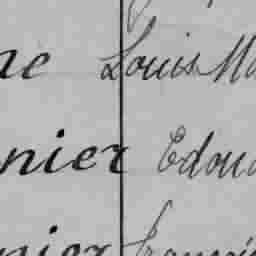 ne Louis Ma
nier Edoua
nier françoi